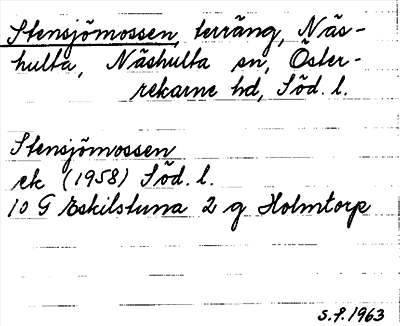 Stensjömossen, terräng, Näs-
hulta, Näshulta sn, Öster-
rekarne hd, Söd. l.
Stensjömossen
ek (1958) Söd. l.
10 G Eskilstuna 2 g Holmtorp
s.f. 1963